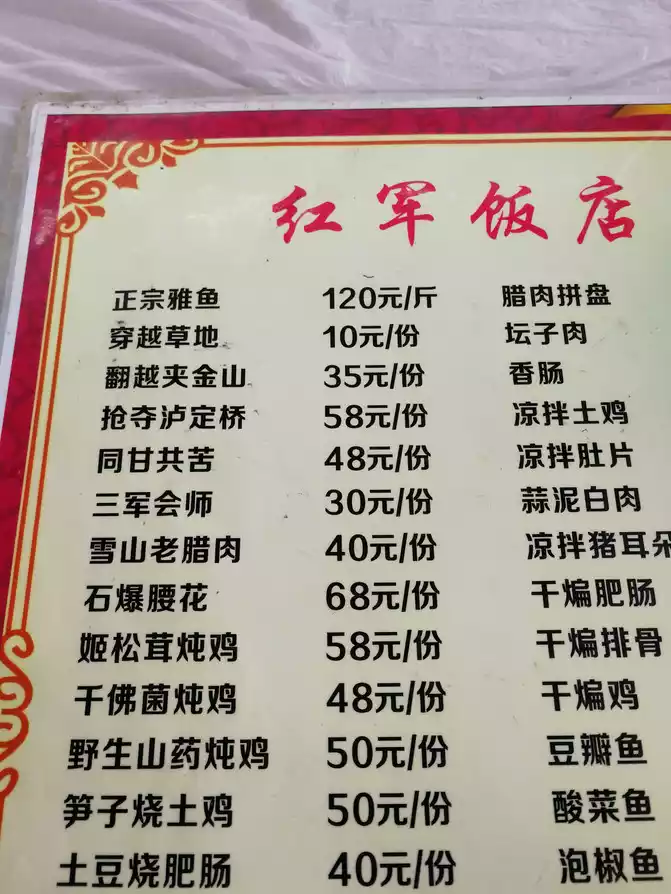 红军饭店
正宗雅鱼 120元/斤 腊肉拼盘
穿越草地 10元/份 坛子肉
翻越夹金山 35元/份 香肠
抢夺泸定桥 58元/份 凉拌土鸡
同甘共苦 48元/份 凉拌肚片
三军会师 30元/份 蒜泥白肉
雪山老腊肉 40元/份 凉拌猪耳朵
石爆腰花 68元/份 干煸肥肠
姬松茸炖鸡 58元/份 干煸排骨
千佛菌炖鸡 48元/份 干煸鸡
野生山药炖鸡 50元/份 豆瓣鱼
笋子烧土鸡 50元/份 酸菜鱼
土豆烧肥肠 40元/份 泡椒鱼